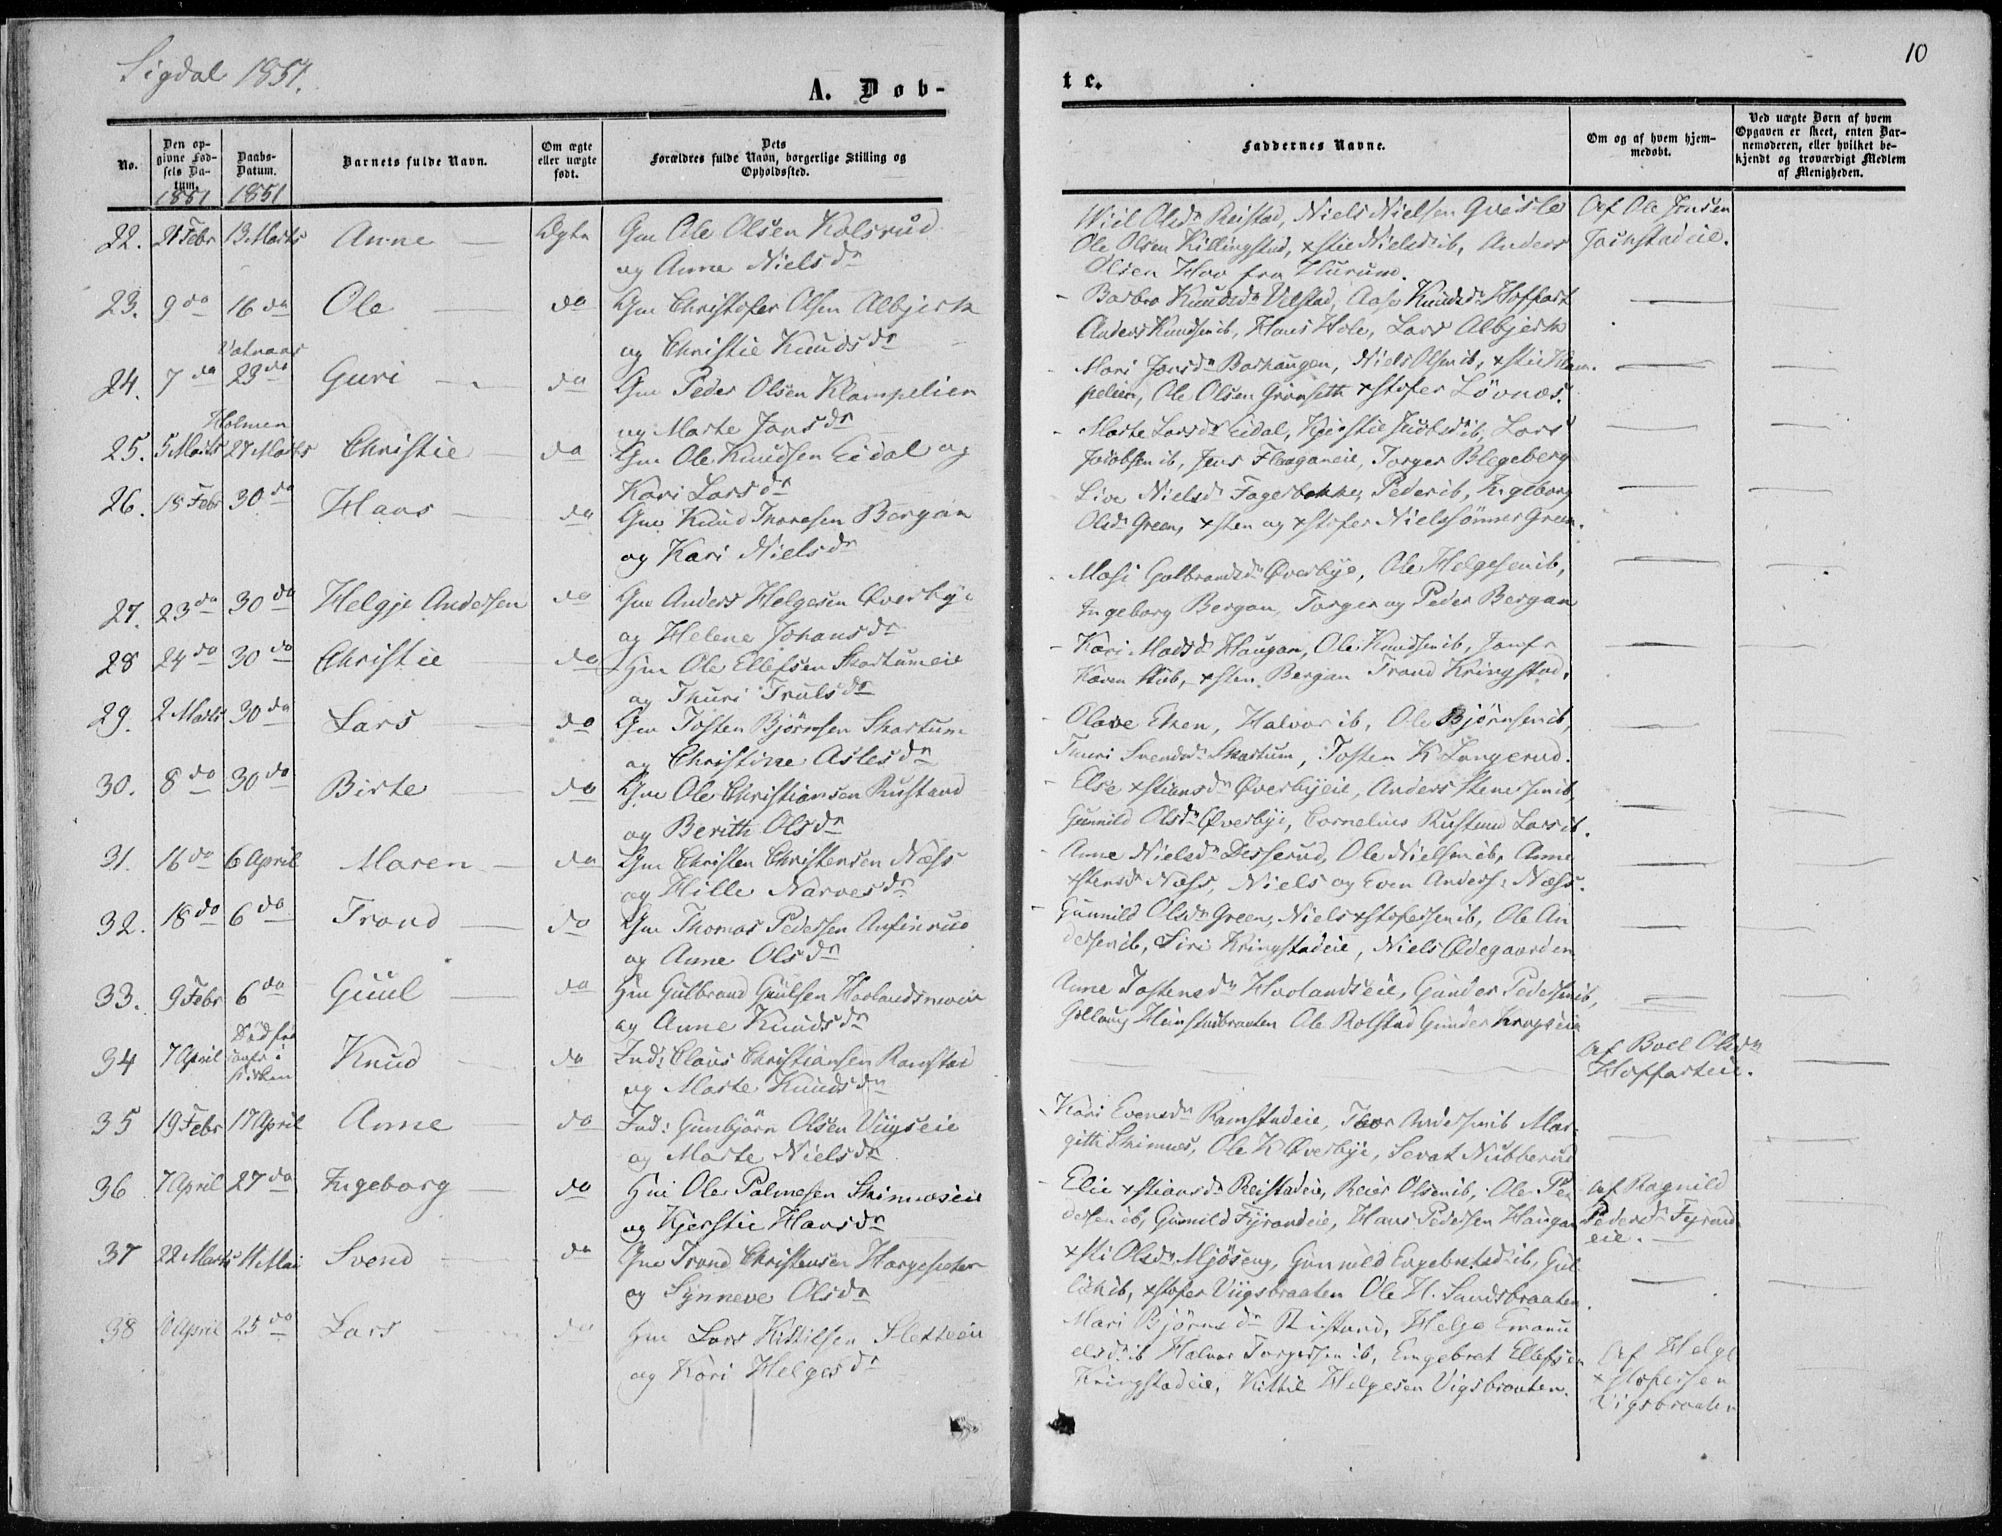 Sigdal 1851.
A. Døb-
No.
Den op-
givne Fød-
sels Da-
tum.
1851
Daabs-
Datum.
1851
Barnets fulde Navn.
Om ægte
eller uægte
født.
Dets
Forældres fulde Navn, borgerlige Stilling og
Opholdssted.
22. 21 Febr 13 Marts Anne — Ægte Gm Ole Olsen Kolsrud
og Anne Nielsdr
23. 9 do 16 do Ole — do Gm Christofer Olsen Albjerk
og Christie Knudsdr
24. 7 do 23 do Guri — do Gm Peder Olsen Klampelien
og Marte Jonsdr
Holmen
25. 5 Marts 27 Marts Christie — do Gm Ole Knudsen Eidal og
Kari Larsdr
26. 18 Febr 30 do Hans — do Gm Knud Thoresen Bergan
og Kari Nielsdr
27. 23 do 30 do Helgje Andersen do Gm Anders Helgesen Øverbye
og Helene Johansdr
28 24 do 30 do Christie — do Hm Ole Ellefsen Skartumeie
og Thuri Trulsdr
29. 2 Marts 30 do Lars — do Gm Tosten Bjørnsen Skartum
og Christine Aslesdr
30. 8 do 30 do Birte — do Gm Ole Christiansen Rustand
og Berith Olsdr
31. 16 do 6 April Maren — do Gm Christen Christensen Næss
og Hille Narvesdr
32. 18 do 6 do Trond — do Gm Thomas Pedersen Anfinrud
og Anne Olsdr
33. 9 Febr 6 do Guul — do Hm Gulbrand Guulsen
og Anne Knudsdr
34 7 April Knud — do Ind: Claus Christiansen Ramstad
og Marte Knudsdr
35 19 Febr 17 April Anne — do Ind: Gunbjørn Olsen Viigseie
og Marte Nielsdr
36 7 April 27 do Ingeborg — do Hm Ole Palmesen Skimnæseie
og Kjerstie Hansdr
37 22 Marts 11 Mai Svend do Gm Trond Christensen
og Synneve Olsdr
38 April 25 do Lars — do Hm Lars Kittilsen
og Kari Helgesdr
te.
10
Faddernes Navne.
Om og af hvem hjem-
medøbt.
Ved uægte Børn af hvem
Opgaven er skeet, enten Bar-
nemoderen, eller hvilket be-
kjendt og troværdigt Medlem
af Menigheden.
Olsdr Reistad, Niels Nielsen Af Ole Jensen
Ole Olsen Killingstad, xstie Nielsd ib, Anders
Olsen Hov fra Hurum.
Barbro Knudsdr Velstad, Aase Knudsdr Hoffart
Anders Knudsen ib, Hans Hole, Lars Albjerk
Mari Jonsdr Borhaugen, Niels Olsen ib, xstie Klam-
pelien, Ole Olsen Grønseth xstofer Løvnæs.
Marte Larsdr Eidal, Kjerstie ib, Lars
Jacobsen ib, Jens Flaaganeie, Torger Blegeberg
Live Nielsdr Fagerbakke, Peder ib, Ingeborg
Olsdr Green, xsten og xstofer Nielssønner Green.
Mari Gulbrandsdr Øverbye, Ole Helgesen ib,
Ingeborg Bergan, Torger og Peder Bergan
Kari Madsdr Haugan, Ole Knudsen ib, Jomfr
Karen Stub, xsten Bergan Trond Kringstad.
Olave Eken, Halvor ib, Ole Bjørnsen ib,
Thuri Svendsdr Skartum, Tosten K Langerud.
Else xstiansdr Øverbyeie, Anders Stensen ib,
Gunnild Olsdr Øverbye, Cornelius Rustand Lars ib.
Anne Nielsdr Desserud, Ole Nielsen ib, Anne
xstensdr Næss, Niels og Even Anders: Næss.
Gunnild Olsdr Green, Niels xstofersen ib, Ole An
dersen ib, Siri Kringstadeie, Niels Ødegaarden
Anne Tostensdr Hovlandseie, Gunder Pedersen ib,
Ole Rolstad Gunder
Af Boel Olsdr
Hoffarteie.
Kari Evensdr Ramstadeie, Thor Andersen ib Mar-
gith Skimnæs, Ole K Øverbye, Sevat Nubberud
Elie xstiansdr Reistadeie, Reier Olsen ib, Ole Pe Af Ragnild
dersen ib, Gunnild Fyrandeie, Hans Pedersen Haugan Pedersdr Fyrand
eie.
xsti Olsdr Mjøseng, Gunnild Engebretsdr ib, Gul-
lick ib, xstofer Viigsbraaten Ole H. Sandsbraaten
Mari Bjørnsdr Rustand, Helge Emanu
elsdr ib Halvor Torgersen ib, Engebret Ellefsen Af Helge
Kringstadeie, Kittil Helgesen Vigsbraaten. xstofersen
Vigsbraaten